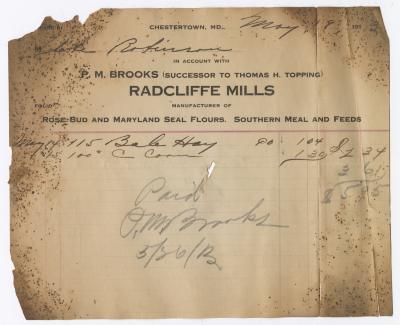 CHESTERTOWN, MD., May 19, 191
Robinson
IN ACCOUNT WITH
P. M. BROOKS (SUCCESSOR TO THOMAS H. TOPPING)
RADCLIFFE MILLS
MANUFACTURER OF
ROSE-BUD AND MARYLAND SEAL FLOURS. SOUTHERN MEAL AND FEEDS
May 14 115 Bale Hay 90 104
15 100 C Corn 130 $ 2 34
Paid
P. M. Brooks
5/26/12